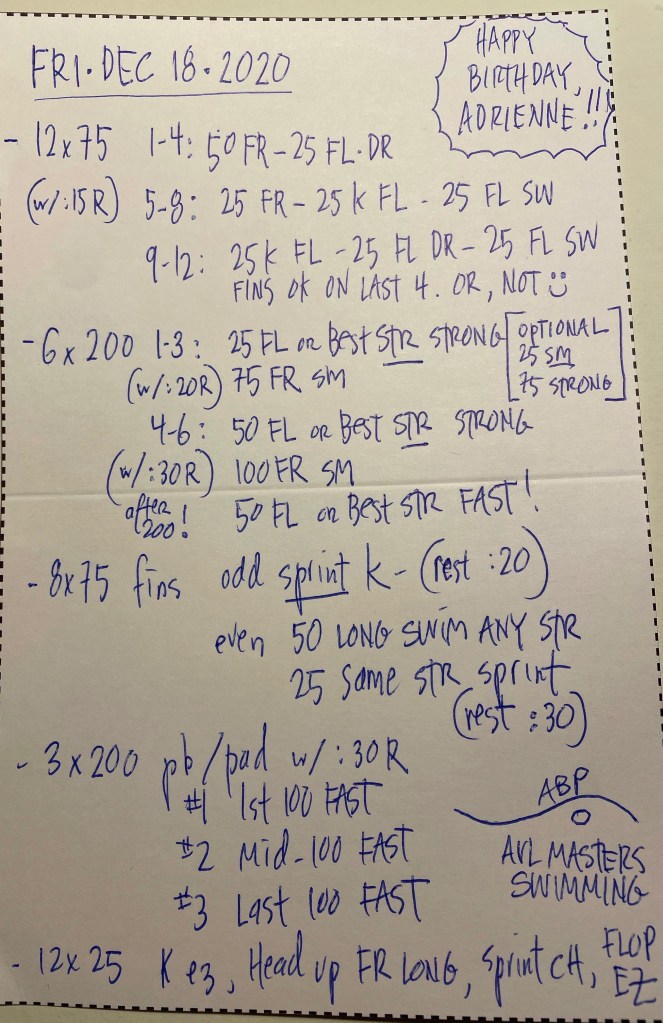 FRI. DEC 18. 2020
HAPPY
BIRTHDAY,
ADRIENNE!!!
- 12x75 1-4: 50 FR - 25 FL. DR
(w/:15R) 5-8: 25 FR - 25 K FL - 25 FL SW
9-12: 25K FL - 25 FL DR - 25 FL SW
FINS OK ON LAST 4. OR, NOT
- 6 x 200 1-3: 25 FL or Best STR STRONG
[OPTIONAL
25 SM
75 STRONG]
(w/:20R) 75 FR SM
4-6: 50 FL OR Best STR STRONG
(w/:30R) 100 FR SM
after
200!
50 FL or Best STR FAST!
- 8x75 fins odd sprint K - (rest :20)
even 50 LONG SWIM ANY STR
25 Same STR sprint
(rest :30)
- 3 x 200 pb/pad w/:30R
#1 1st 100 FAST
#2 Mid-100 FAST
#3 Last 100 FAST
ABP
AVL MASTERS
SWIMMING
- 12x25 K ez, Head up FR LONG, Sprint CH, FLOP
EZ